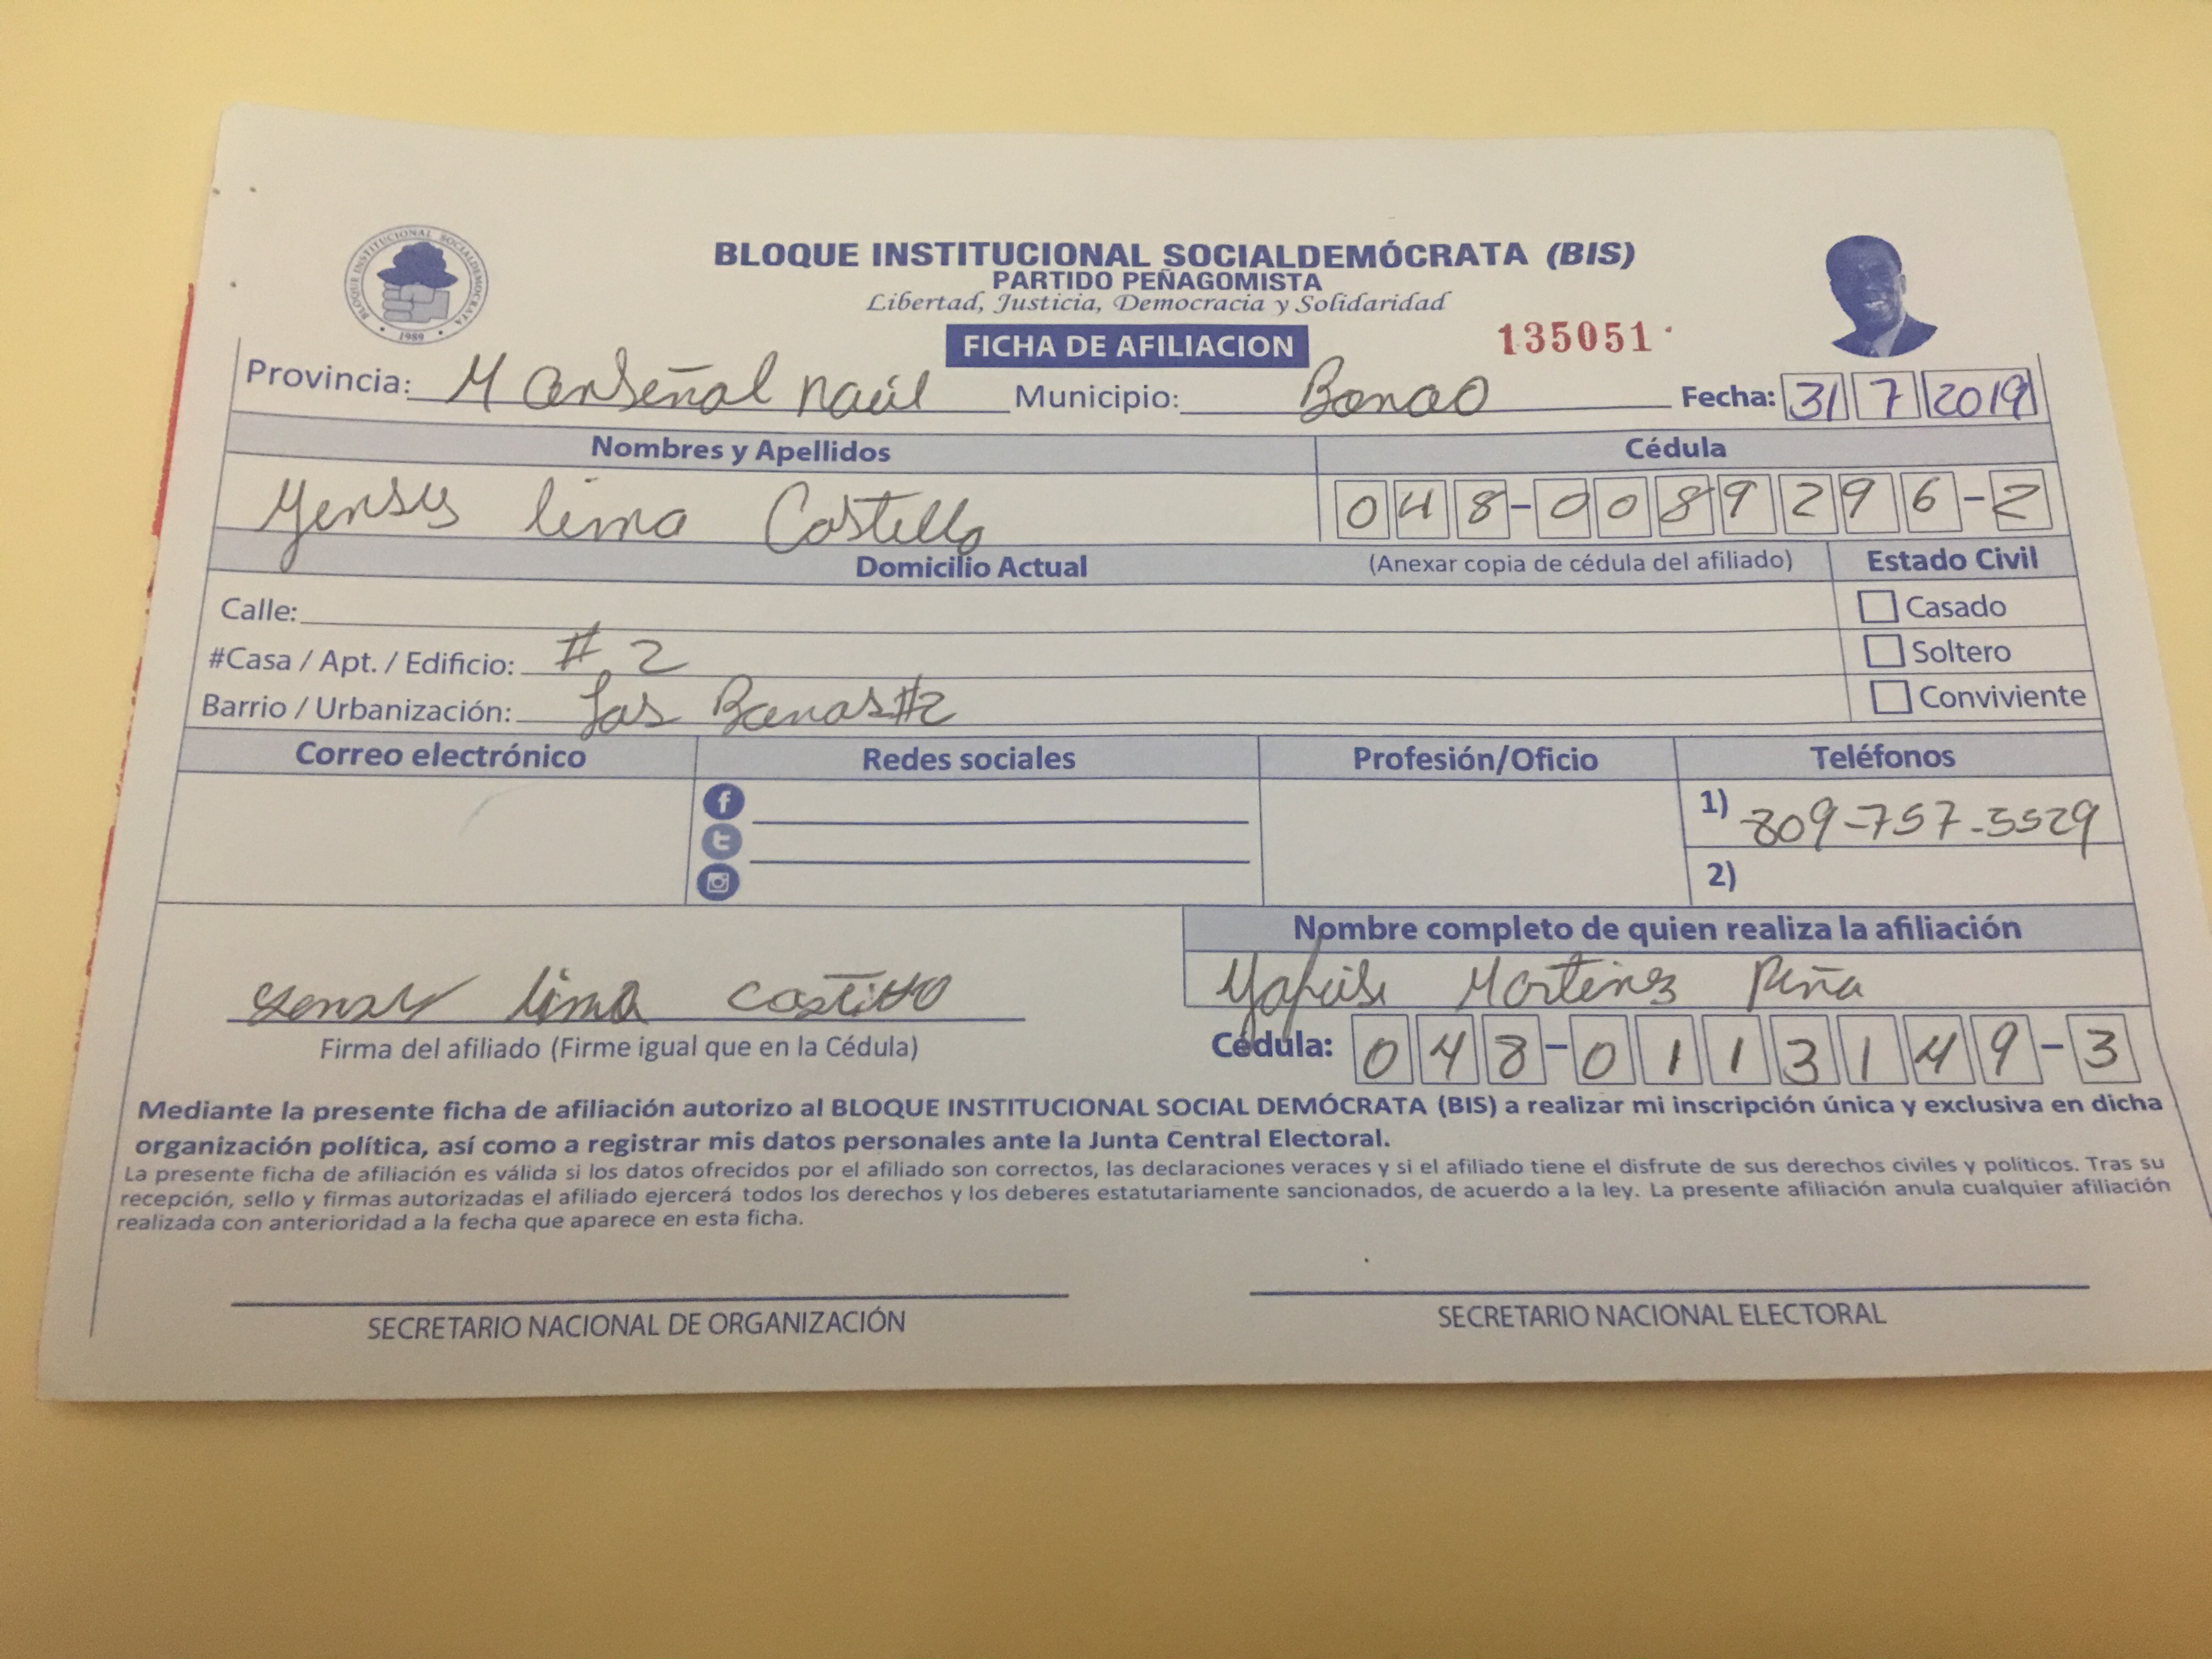 BLOQUE INSTITUCIONAL SOCIALDEMOCRATA
1989
BLOQUE INSTITUCIONAL SOCIALDEMÓCRATA (BIS)
PARTIDO PEÑAGOMISTA
Libertad, Justicia, Democracia y Solidaridad
FICHA DE AFILIACION 135051
Provincia: Monseñal naúl Municipio: Bonao Fecha: 31 7 2019
Nombres y Apellidos Cédula
Yensys lima Castillo 048-0089296-2
Domicilio Actual (Anexar copia de cédula del afiliado) Estado Civil
Calle: Casado
#Casa / Apt. / Edificio: # 2 Soltero
Barrio / Urbanización: Las #2 Conviviente
Correo electrónico Redes sociales Profesión/Oficio Teléfonos
1) 809-757-5529
2)
Nombre completo de quien realiza la afiliación
Martinez Peña
lima castillo
Firma del afiliado (Firme igual que en la Cédula) Cédula: 048-0113149-3
Mediante la presente ficha de afiliación autorizo al BLOQUE INSTITUCIONAL SOCIAL DEMÓCRATA (BIS) a realizar mi inscripción única y exclusiva en dicha
organización política, así como a registrar mis datos personales ante la Junta Central Electoral.
La presente ficha de afiliación es válida si los datos ofrecidos por el afiliado son correctos, las declaraciones veraces y si el afiliado tiene el disfrute de sus derechos civiles y políticos. Tras su
recepción, sello y firmas autorizadas el afiliado ejercerá todos los derechos y los deberes estatutariamente sancionados, de acuerdo a la ley. La presente afiliación anula cualquier afiliación
realizada con anterioridad a la fecha que aparece en esta ficha.
SECRETARIO NACIONAL DE ORGANIZACIÓN SECRETARIO NACIONAL ELECTORAL